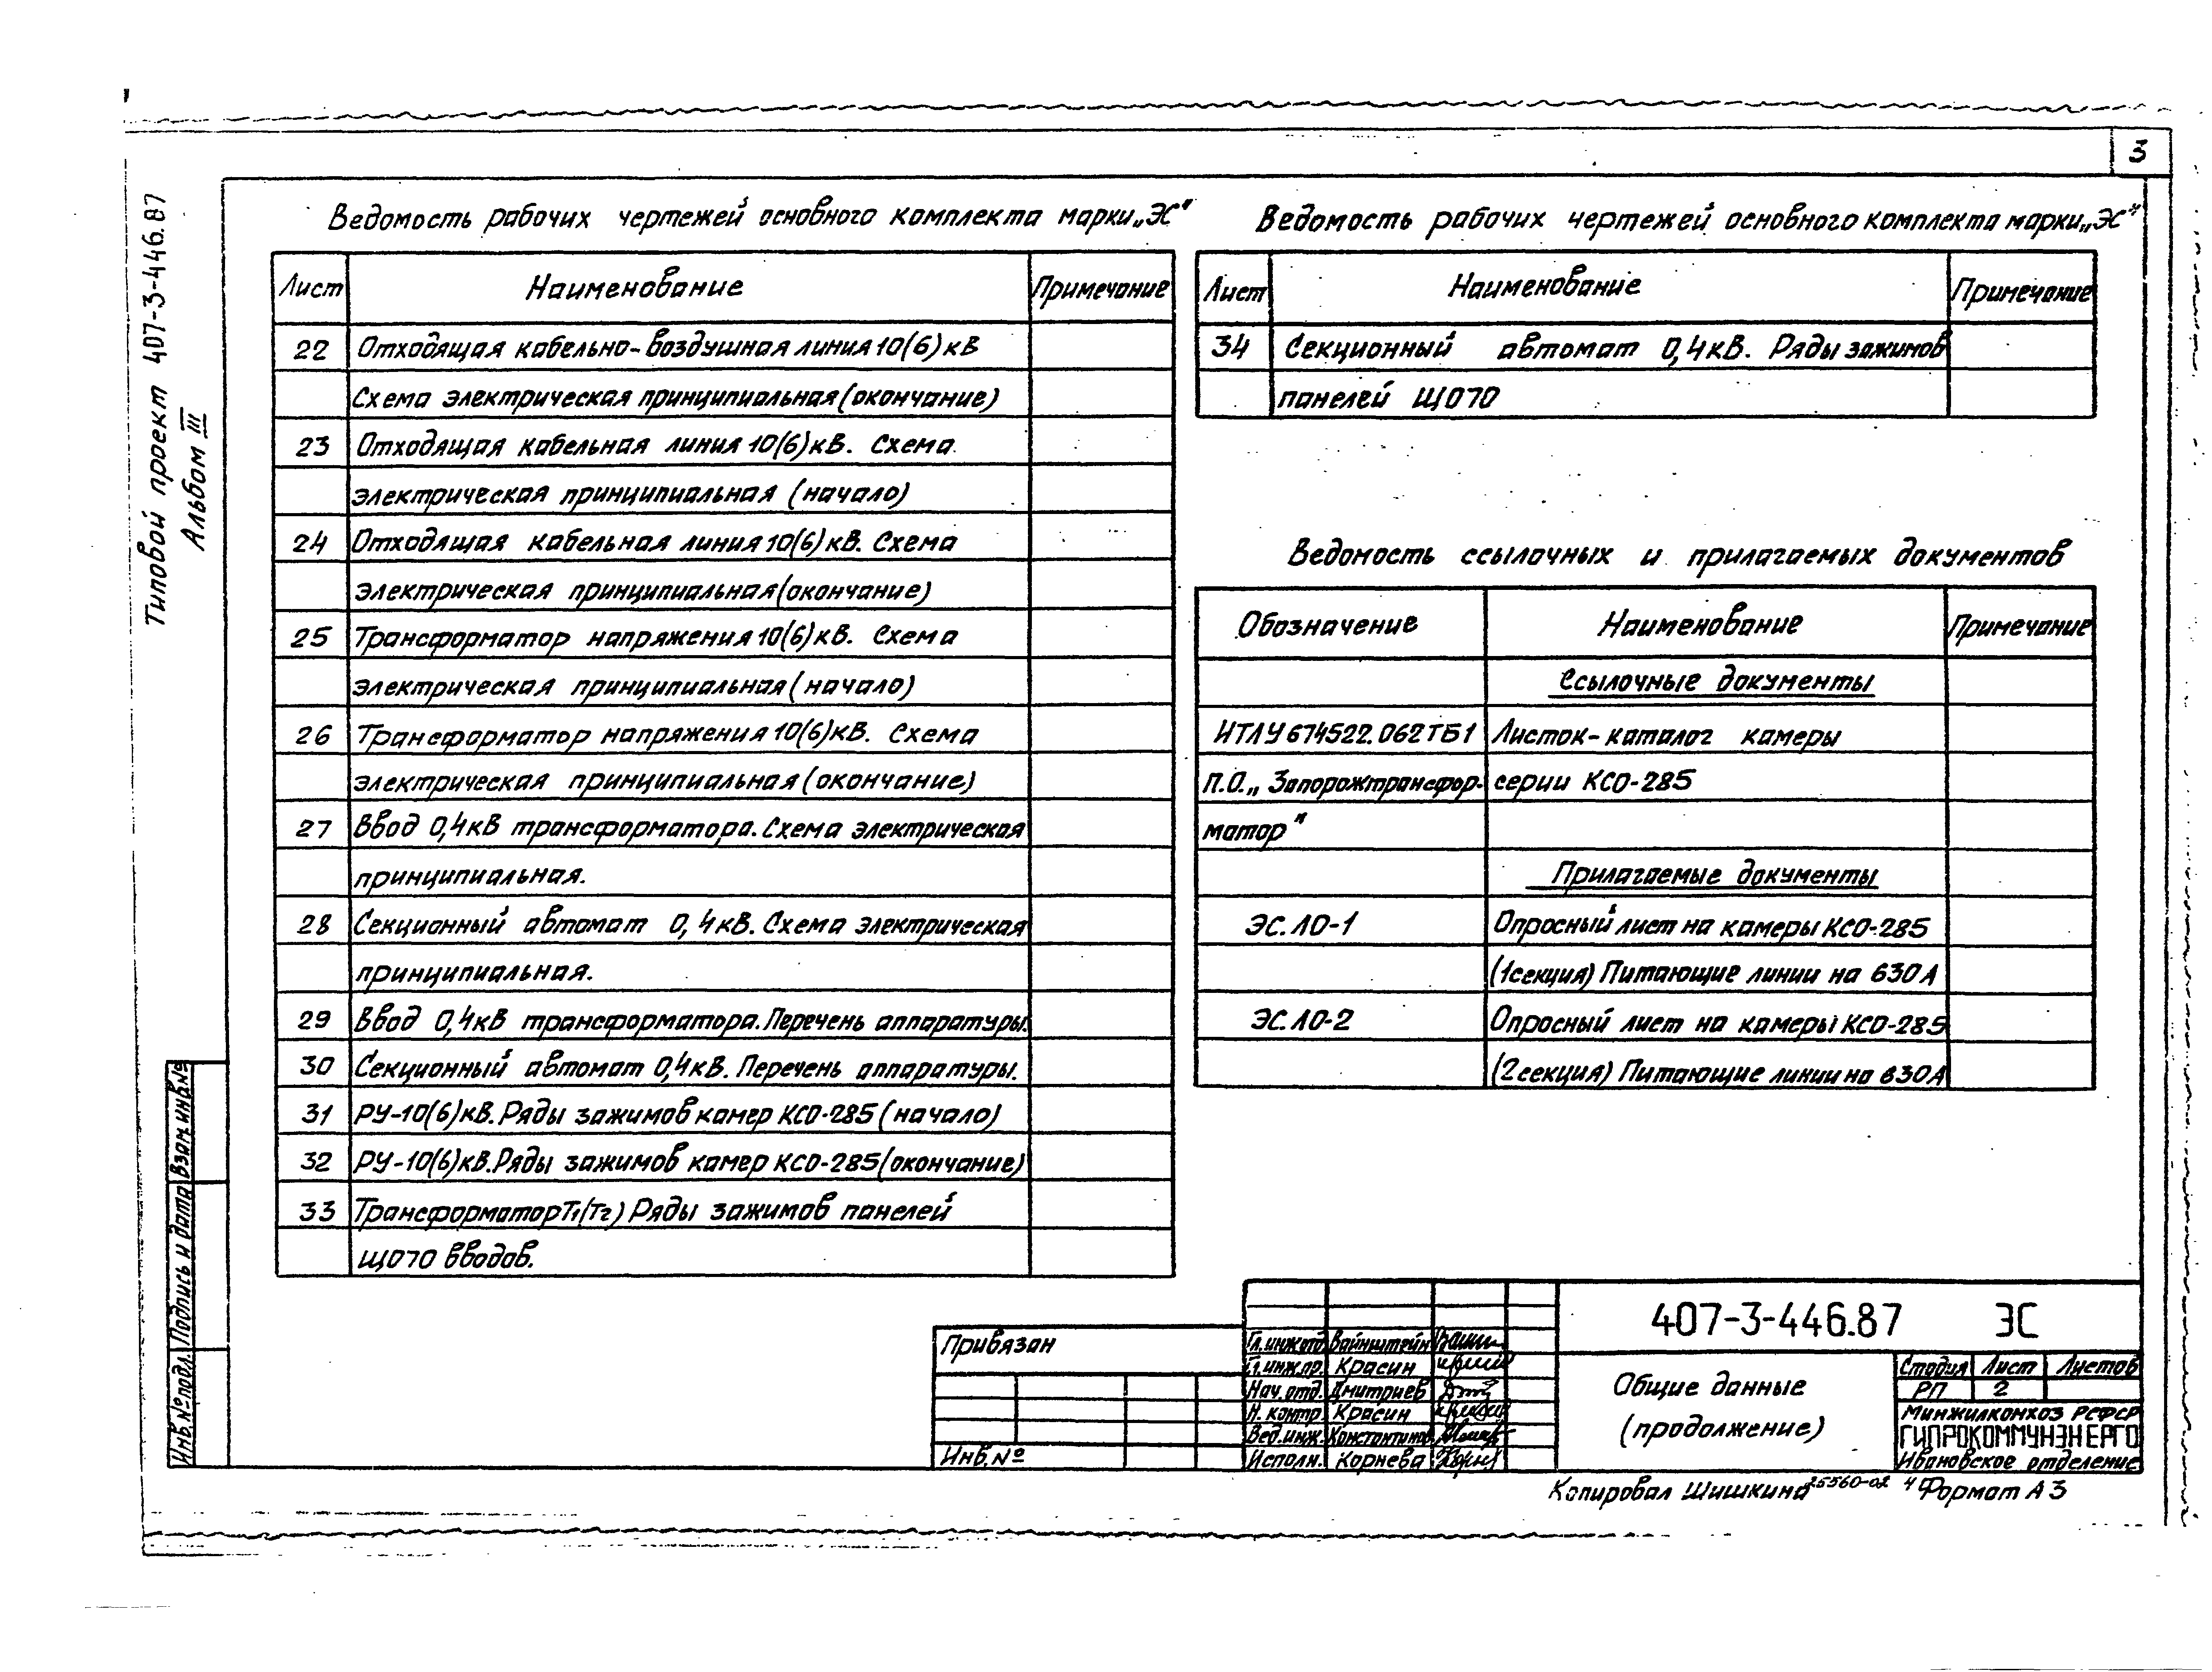 3
Типовой проект 407-3-446.87
Альбом III
Ведомость рабочих чертежей основного комплекта марки „ЭС"
Лист Наименование Примечание
22 Отходящая кабельно-воздушная линия 10(6)кВ
Схема электрическая принципиальная (окончание)
23 Отходящая кабельная линия 10(6)кВ. Схема
электрическая принципиальная (начало)
24 Отходящая кабельная линия 10(6)кВ. Схема
электрическая принципиальная (окончание)
25 Трансформатор напряжения 10(6)кВ. Схема
электрическая принципиальная (начало)
26 Трансформатор напряжения 10(6)кВ. Схема
электрическая принципиальная (окончание)
27 Ввод 0,4кВ трансформатора. Схема электрическая
принципиальная.
28 Секционный автомат 0,4кВ. Схема электрическая
принципиальная.
29 Ввод 0,4кВ трансформатора. Перечень аппаратуры.
30 Секционный автомат 0,4кВ. Перечень аппаратуры.
31 РУ-10(6)кВ. Ряды зажимов камер КСО-285 (начало)
32 РУ-10(6)кВ. Ряды зажимов камер КСО-285 (окончание)
33 Трансформатор Т1(Т2) Ряды зажимов панелей
ЩО70 вводов.
Ведомость рабочих чертежей основного комплекта марки „ЭС"
Лист Наименование Примечание
34 Секционный автомат 0,4кВ. Ряды зажимов
панелей ЩО70
Ведомость ссылочных и прилагаемых документов
Обозначение Наименование Примечание
Ссылочные документы
ИТЛУ674522.062ТБ1 Листок-каталог камеры
П.О. „Запорожтрансфор- серии КСО-285
матор"
Прилагаемые документы
ЭС.ЛО-1 Опросный лист на камеры КСО-285
(1секция) Питающие линии на 630А
ЭС.ЛО-2 Опросный лист на камеры КСО-285
(2секция) Питающие линии на 630А
Взам.инв№
Подпись и дата
Инв.№подл.
Привязан
Инв.№
Гл.инж.отд. Вайнштейн
Гл.инж.пр. Красин
Нач.отд. Дмитриев
Н.контр. Красин
Вед.инж. Константинов
Исполн. Корнева
407-3-446.87 ЭС
Общие данные
(продолжение)
Стадия Лист Листов
РП 2
Минжилкомхоз РСФСР
ГИПРОКОММУНЭНЕРГО
Ивановское отделение
Копировал Шишкина 25560-02 4 Формат А3